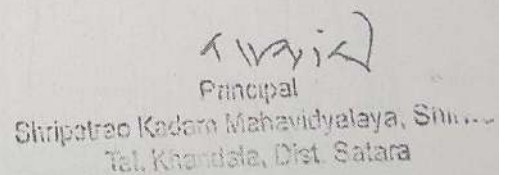 Principal
Shripatrao Kadam Mahavidyalaya,
Tal. Khandala, Dist. Satara